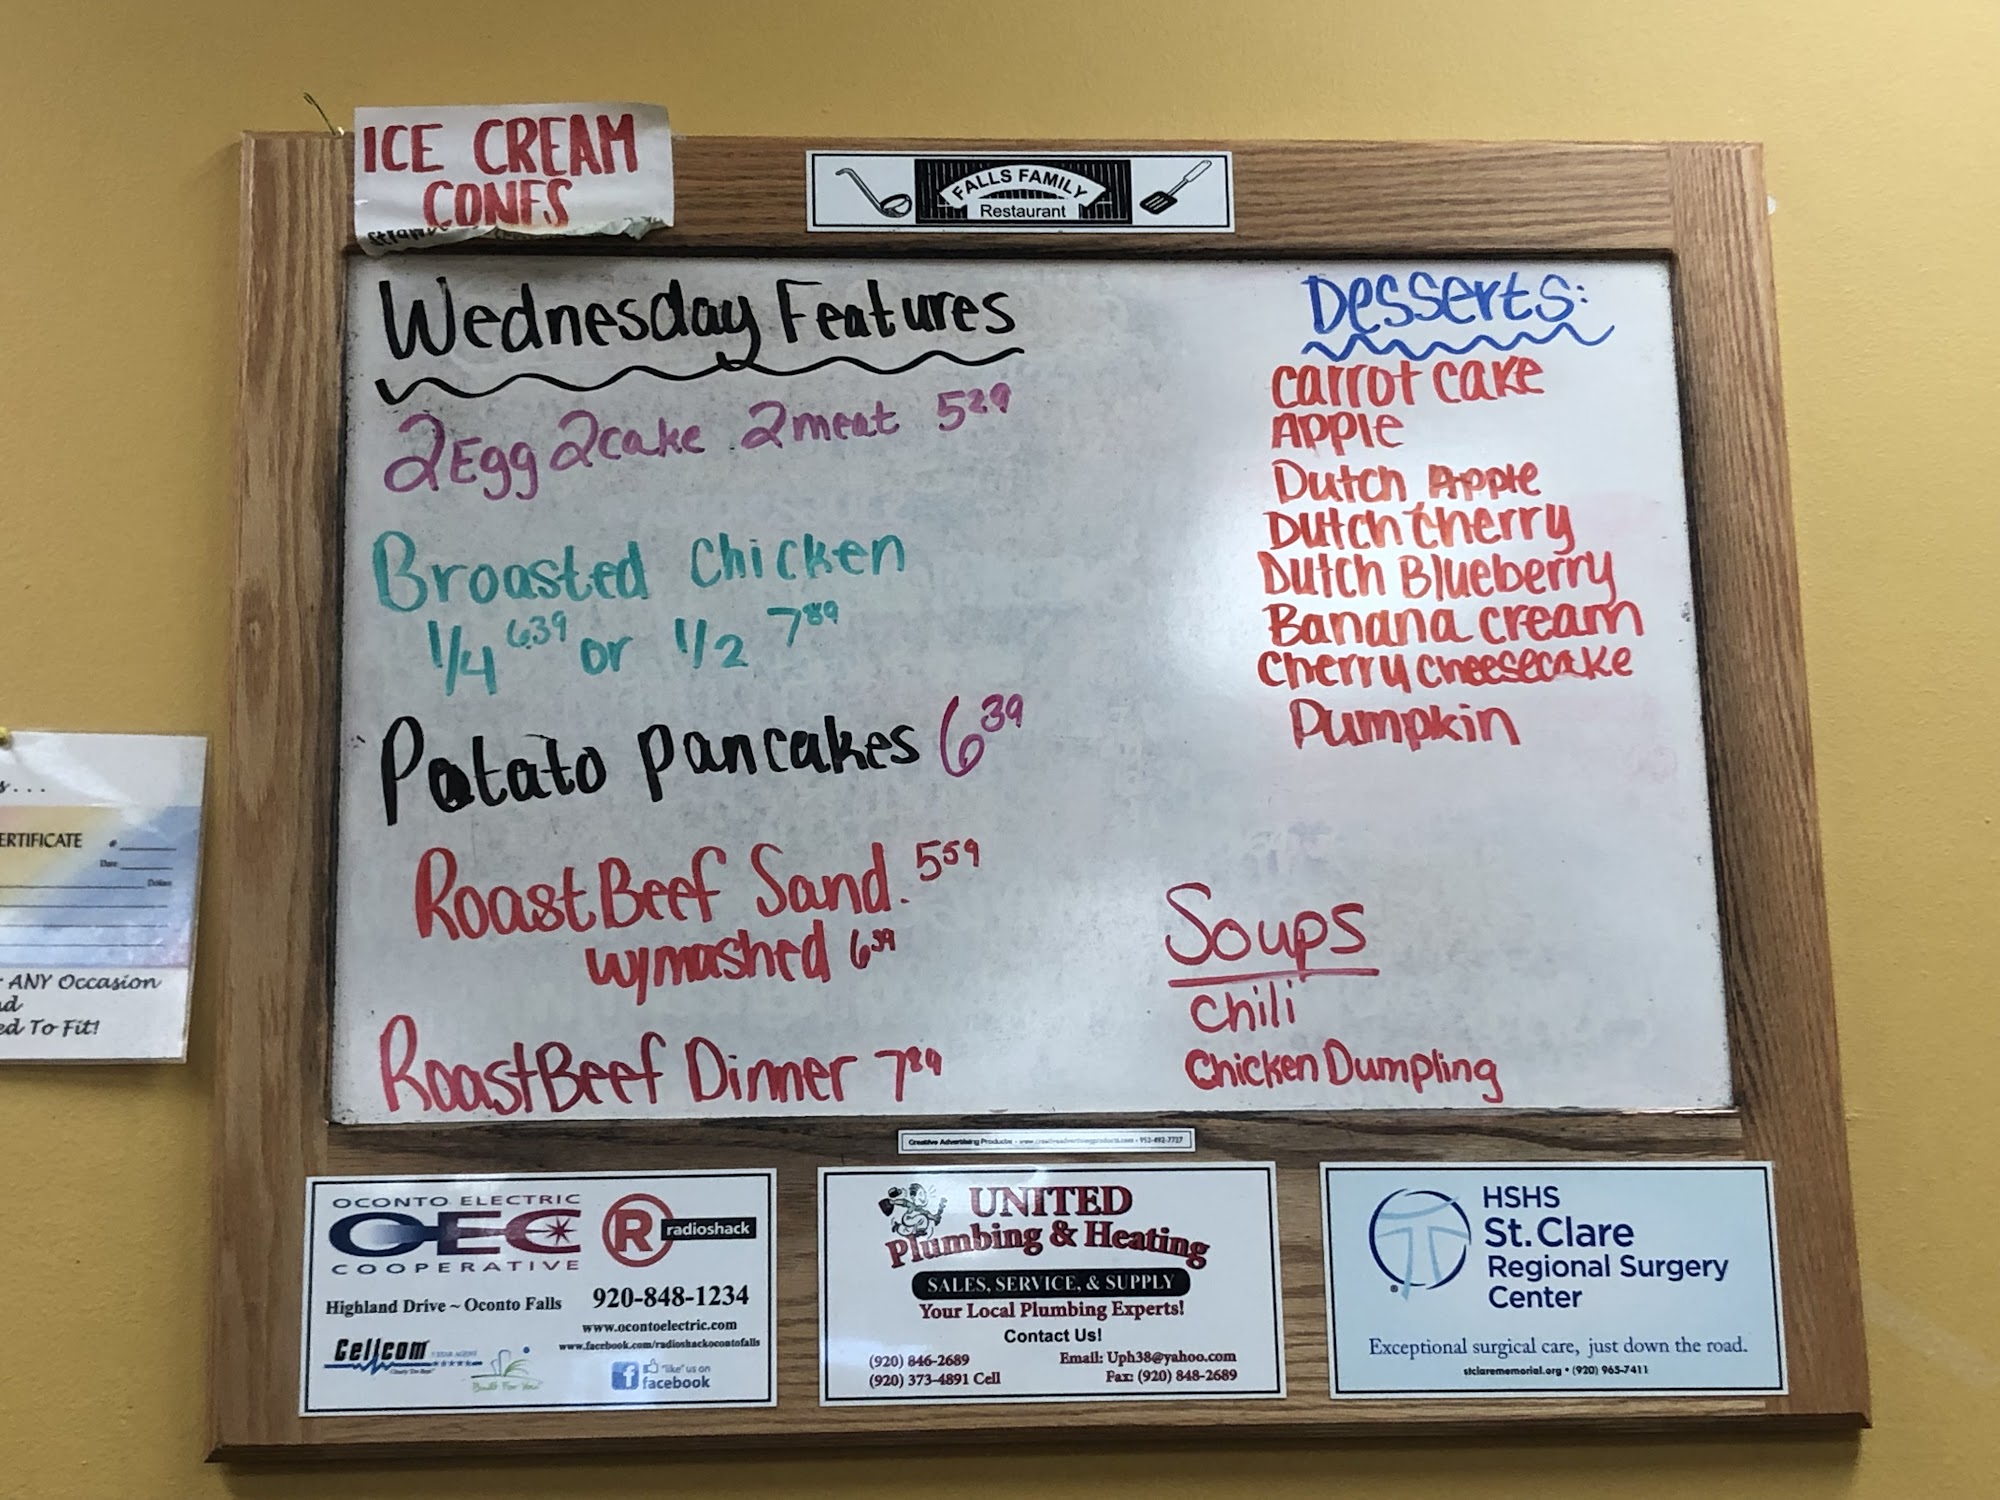 ICE CREAM
CONES
FALLS FAMILY
Restaurant
Wednesday Features
2Egg 2cake 2meat 5 29
Broasted Chicken
1/4 6.39 or 1/2 7 89
Potato Pancakes 6 39
Roast Beef Sand. 5 59
w/mashed 6 39
Roast Beef Dinner 7 89
Desserts:
Carrot cake
Apple
Dutch Apple
Dutch Cherry
Dutch Blueberry
Banana cream
Cherry Cheesecake
Pumpkin
Soups
Chili
Chicken Dumpling
ERTIFICATE #
Date
Dollars
ANY Occasion
ed To Fit!
Creative Advertising Products • www.creativeadvertisingproducts.com • 952-492-7727
OCONTO ELECTRIC
OEC
COOPERATIVE
R radioshack
Highland Drive ~ Oconto Falls
920-848-1234
www.ocontoelectric.com
www.facebook.com/radioshackocontofalls
Cellcom
Built For You
"like" us on
facebook
UNITED
Plumbing & Heating
SALES, SERVICE, & SUPPLY
Your Local Plumbing Experts!
Contact Us!
(920) 846-2689 Email: Uph38@yahoo.com
(920) 373-4891 Cell Fax: (920) 848-2689
HSHS
St. Clare
Regional Surgery
Center
Exceptional surgical care, just down the road.
stclarememorial.org • (920) 965-7411